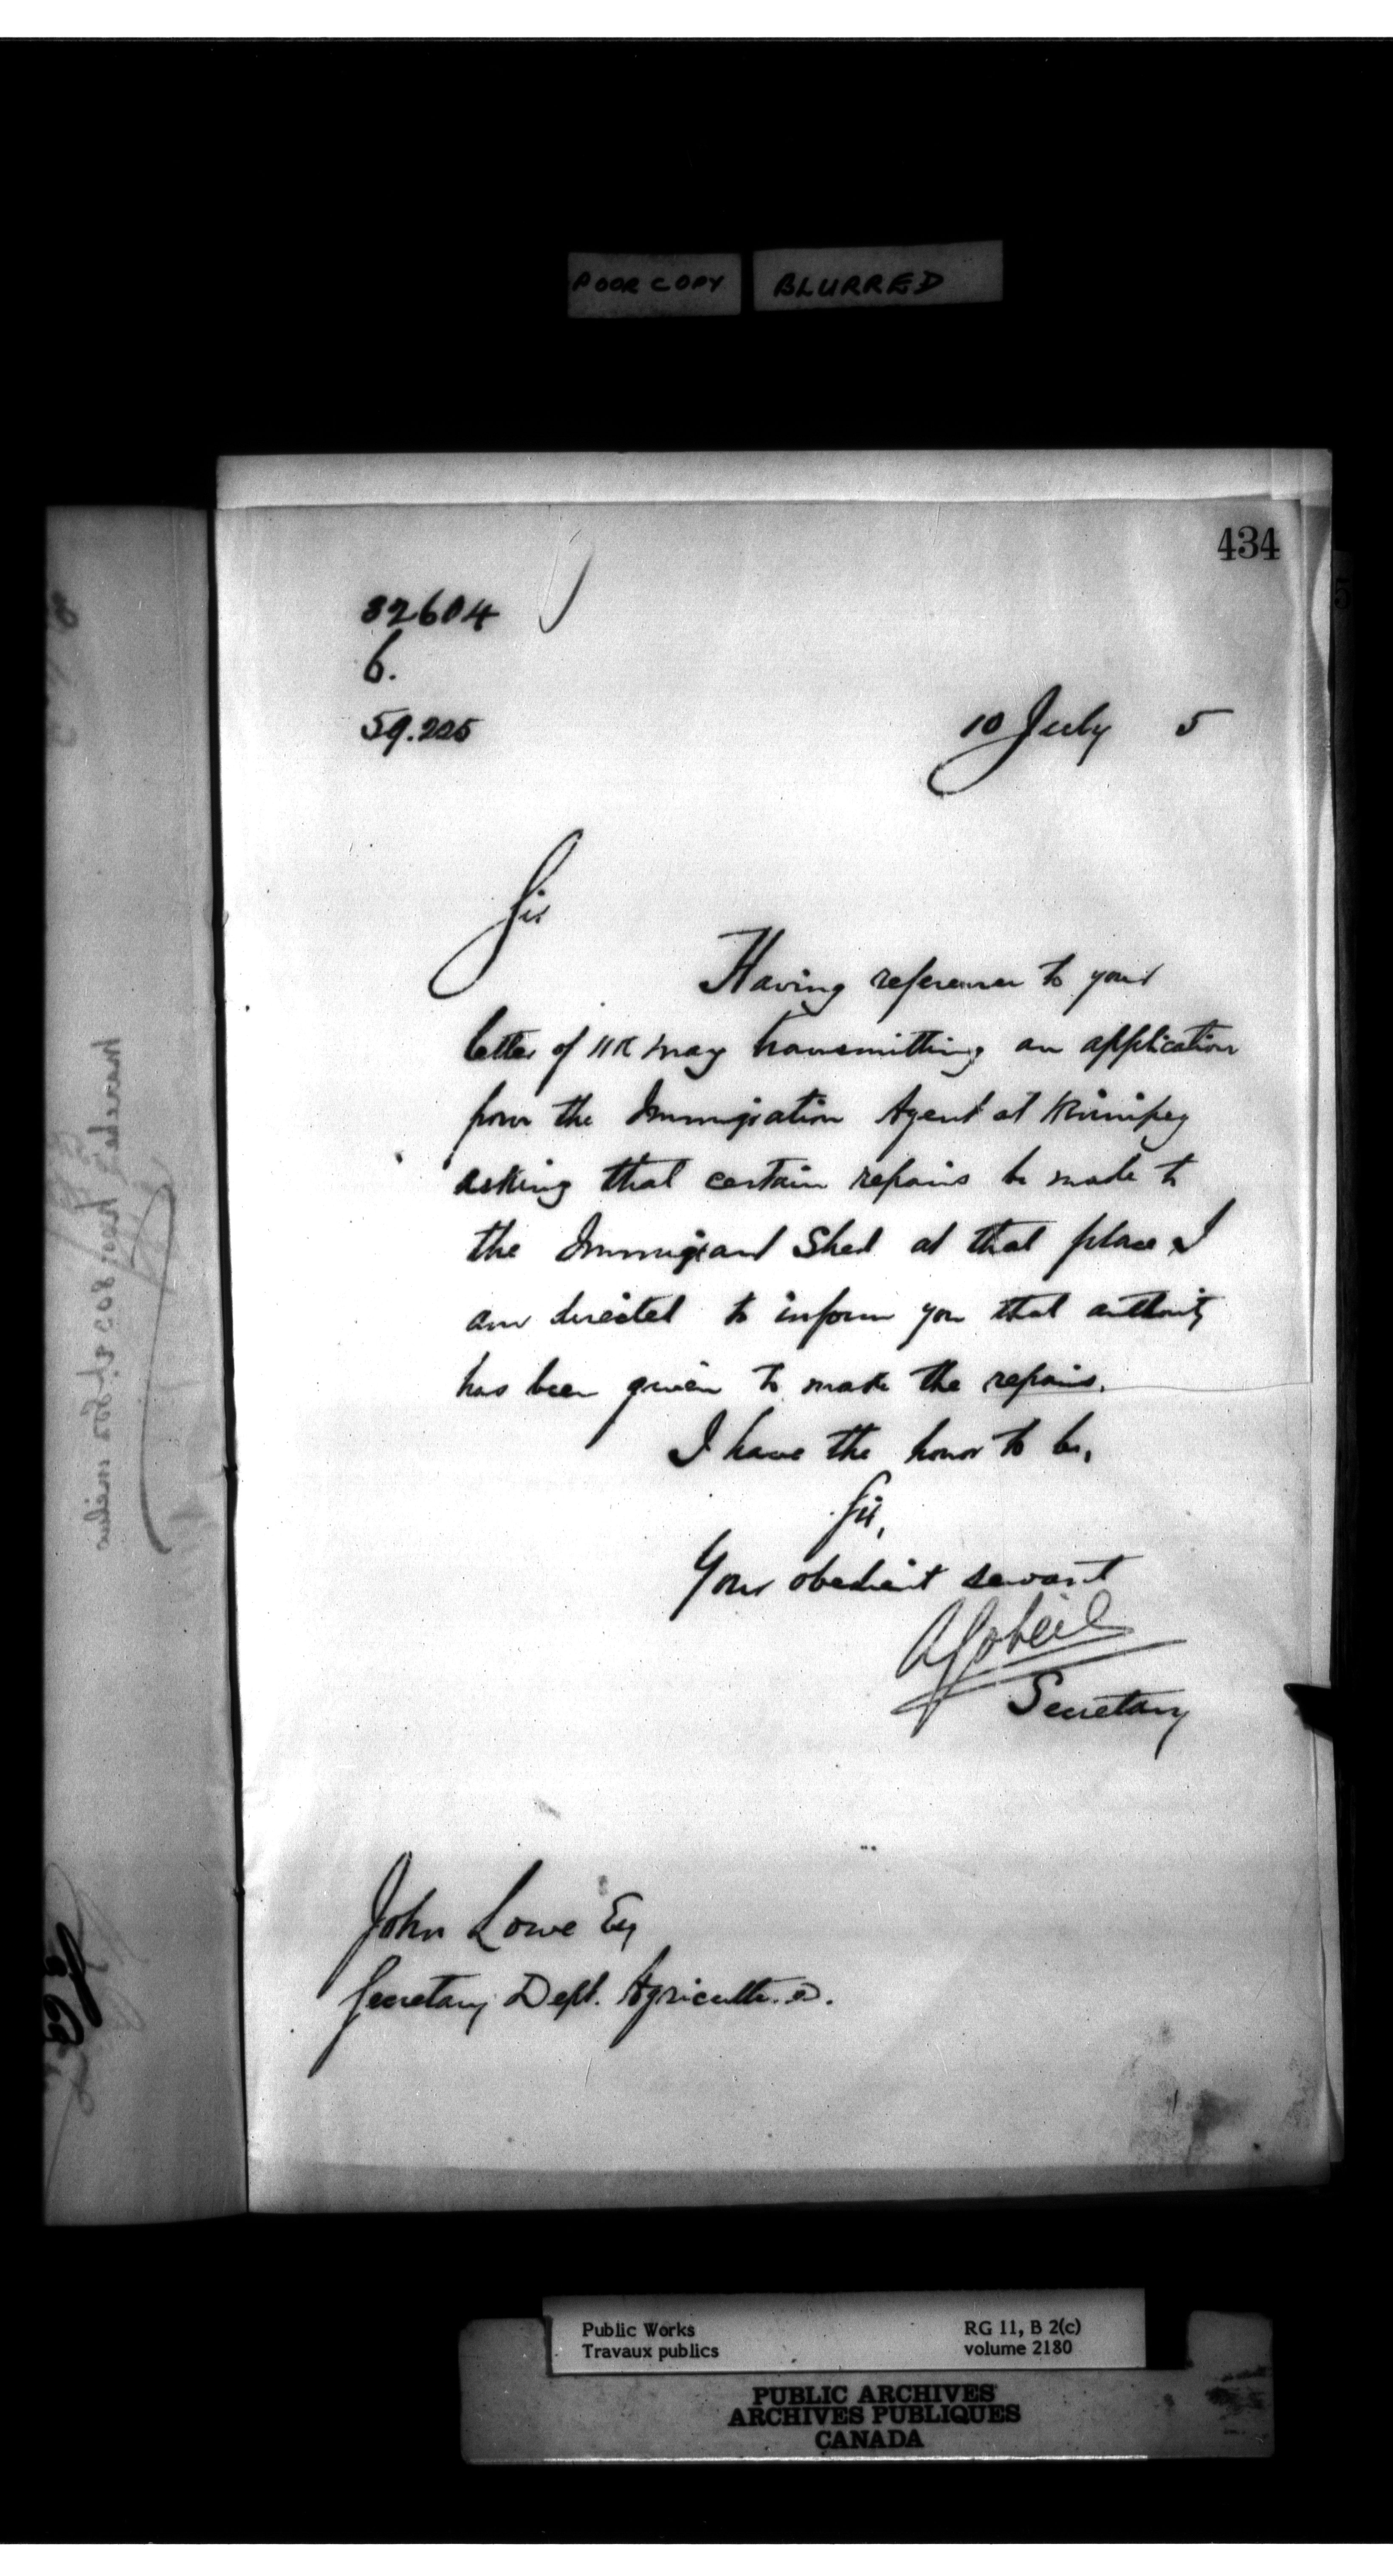 POOR COPY BLURRED
434
32604
6.
59.225
10 July 5
Sir
Having reference to your
letter of 11th May transmitting an application
from the Immigration Agent at Winnipeg
asking that certain repairs be made to
the Immigrant Shed at that place I
am directed to inform you that authority
has been given to make the repairs.
I have the honor to be,
Sir,
Your obedient servant
A Gobeil
Secretary
John Lowe Esq
Secretary Dept. Agriculture.
Public Works
Travaux publics
RG 11, B 2(c)
volume 2180
PUBLIC ARCHIVES
ARCHIVES PUBLIQUES
CANADA